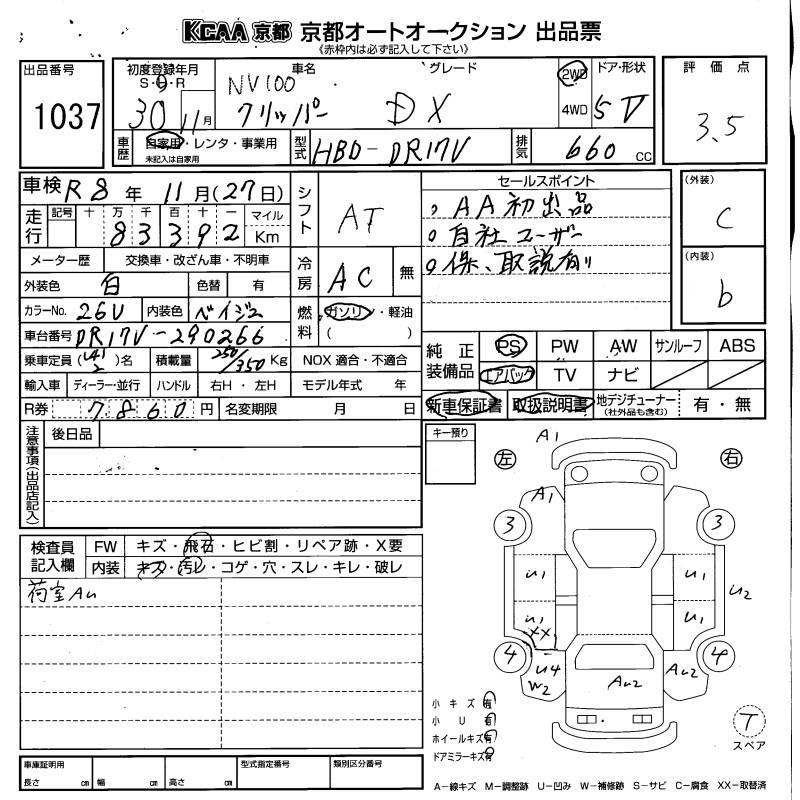 KCAA 京都 京都オートオークション 出品票
《赤枠内は必ず記入して下さい》
出品番号 1037
初度登録年月 S・H・R 30年 11月
車名 NV100 クリッパー
グレード DX
2WD 4WD
ドア・形状 5 V
評価点 3.5
車歴 自家用・レンタ・事業用
未記入は自家用
型式 HBD-DR17V
排気 660 cc
車検 R8年 11月(27日)
走行 記号 十 万 千 百 十 一 マイル
83392 Km
メーター歴 交換車・改ざん車・不明車
外装色 白 色替 有
カラーNo. 26U 内装色 ベイジュ
車台番号 DR17V-290266
乗車定員(4)名 2 積載量 250/350 Kg NOX 適合・不適合
輸入車 ディーラー・並行 ハンドル 右H・左H モデル年式 年
R券 7860円 名変期限 月 日
シフト AT
冷房 AC 無
燃料 ガソリン・軽油
( )
セールスポイント
。AA初出品
。自社ユーザー
。保、取説有り
(外装) C
(内装) b
純正装備品 PS PW AW サンルーフ ABS
エアバック TV ナビ
新車保証書 取扱説明書 地デジチューナー(社外品も含む) 有・無
注意事項(出品店記入)
後日品
キー預り
検査員記入欄
FW キズ・飛石・ヒビ割・リペア跡・X要
内装 キズ・汚レ・コゲ・穴・スレ・キレ・破レ
荷室AU
左 右
A1
A1
3 3
U1 U1
U2
U1 U1
XX1
4 4
U4
W2
AU2 AU2
小キズ 有
小U 有
ホイールキズ 有
ドアミラーキズ 有
T
スペア
車庫証明用
長さ cm 幅 cm 高さ cm
型式指定番号
類別区分番号
A-線キズ M-調整跡 U-凹み W-補修跡 S-サビ C-腐食 XX-取替済